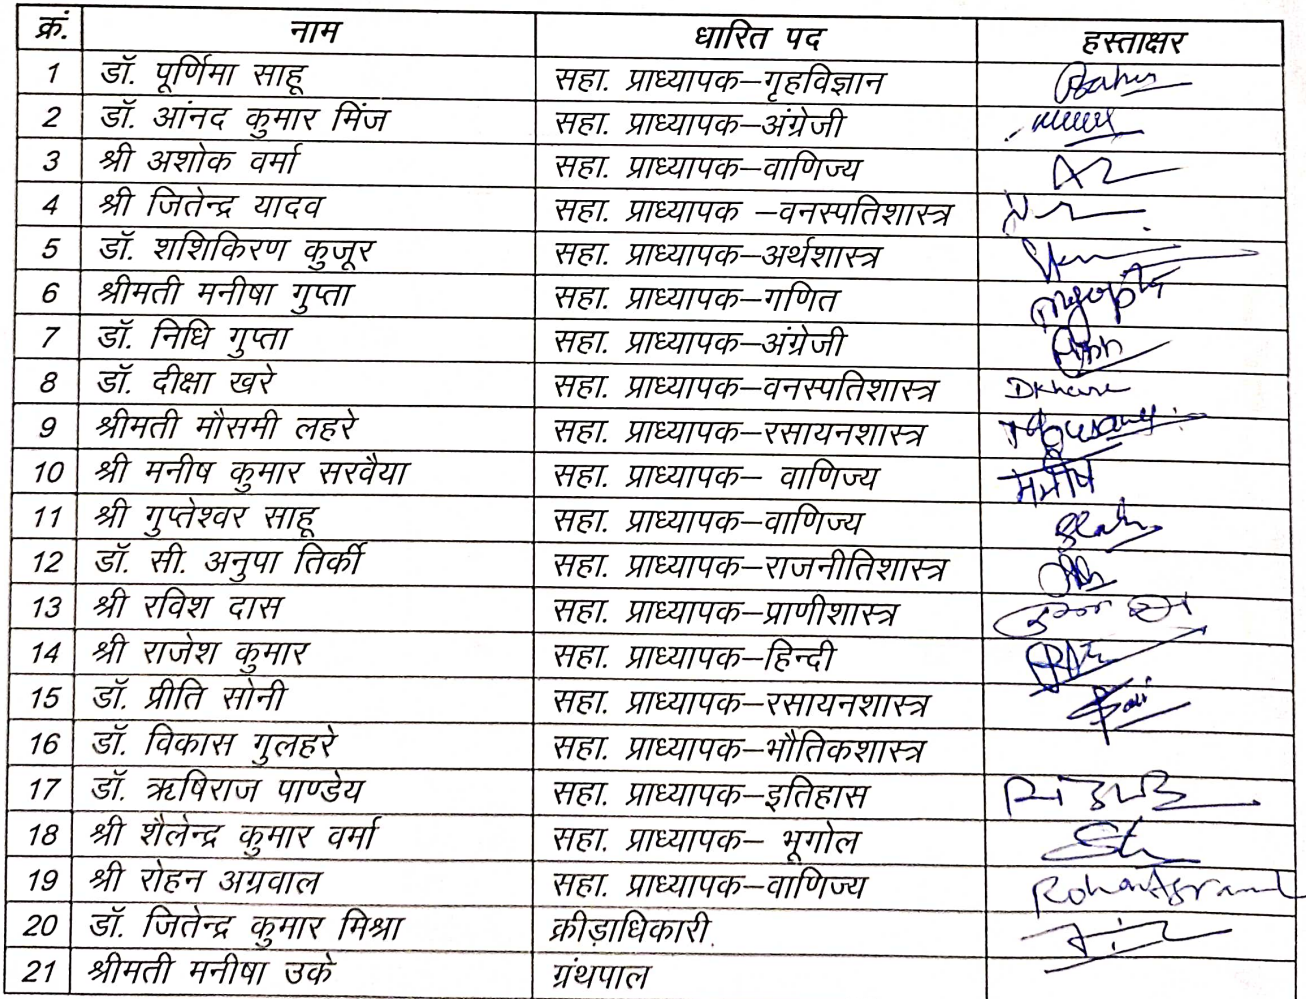 क्रं. नाम धारित पद हस्ताक्षर
1 डॉ. पूर्णिमा साहू सहा. प्राध्यापक–गृहविज्ञान
2 डॉ. आंनद कुमार मिंज सहा. प्राध्यापक–अंग्रेजी
3 श्री अशोक वर्मा सहा. प्राध्यापक–वाणिज्य
4 श्री जितेन्द्र यादव सहा. प्राध्यापक –वनस्पतिशास्त्र
5 डॉ. शशिकिरण कुजूर सहा. प्राध्यापक–अर्थशास्त्र
6 श्रीमती मनीषा गुप्ता सहा. प्राध्यापक–गणित
7 डॉ. निधि गुप्ता सहा. प्राध्यापक–अंग्रेजी
8 डॉ. दीक्षा खरे सहा. प्राध्यापक–वनस्पतिशास्त्र DKhare
9 श्रीमती मौसमी लहरे सहा. प्राध्यापक–रसायनशास्त्र
10 श्री मनीष कुमार सरवैया सहा. प्राध्यापक– वाणिज्य मनीष
11 श्री गुप्तेश्वर साहू सहा. प्राध्यापक–वाणिज्य
12 डॉ. सी. अनुपा तिर्की सहा. प्राध्यापक–राजनीतिशास्त्र
13 श्री रविश दास सहा. प्राध्यापक–प्राणीशास्त्र
14 श्री राजेश कुमार सहा. प्राध्यापक–हिन्दी
15 डॉ. प्रीति सोनी सहा. प्राध्यापक–रसायनशास्त्र
16 डॉ. विकास गुलहरे सहा. प्राध्यापक–भौतिकशास्त्र
17 डॉ. ऋषिराज पाण्डेय सहा. प्राध्यापक–इतिहास
18 श्री शैलेन्द्र कुमार वर्मा सहा. प्राध्यापक– भूगोल
19 श्री रोहन अग्रवाल सहा. प्राध्यापक–वाणिज्य
20 डॉ. जितेन्द्र कुमार मिश्रा क्रीड़ाधिकारी.
21 श्रीमती मनीषा उके ग्रंथपाल